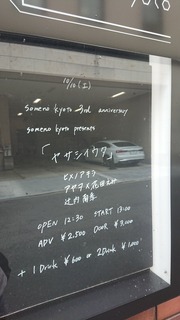 10/10 (土)
someno kyoto 3rd anniversary
someno kyoto presents
「ヤサシイウタ」
ヒメノアキラ
OPEN 12:30 START 13:00
ADV ¥2,500 DOOR ¥3,000
+ 1 Drink ¥600 or 2 Drink ¥1,000